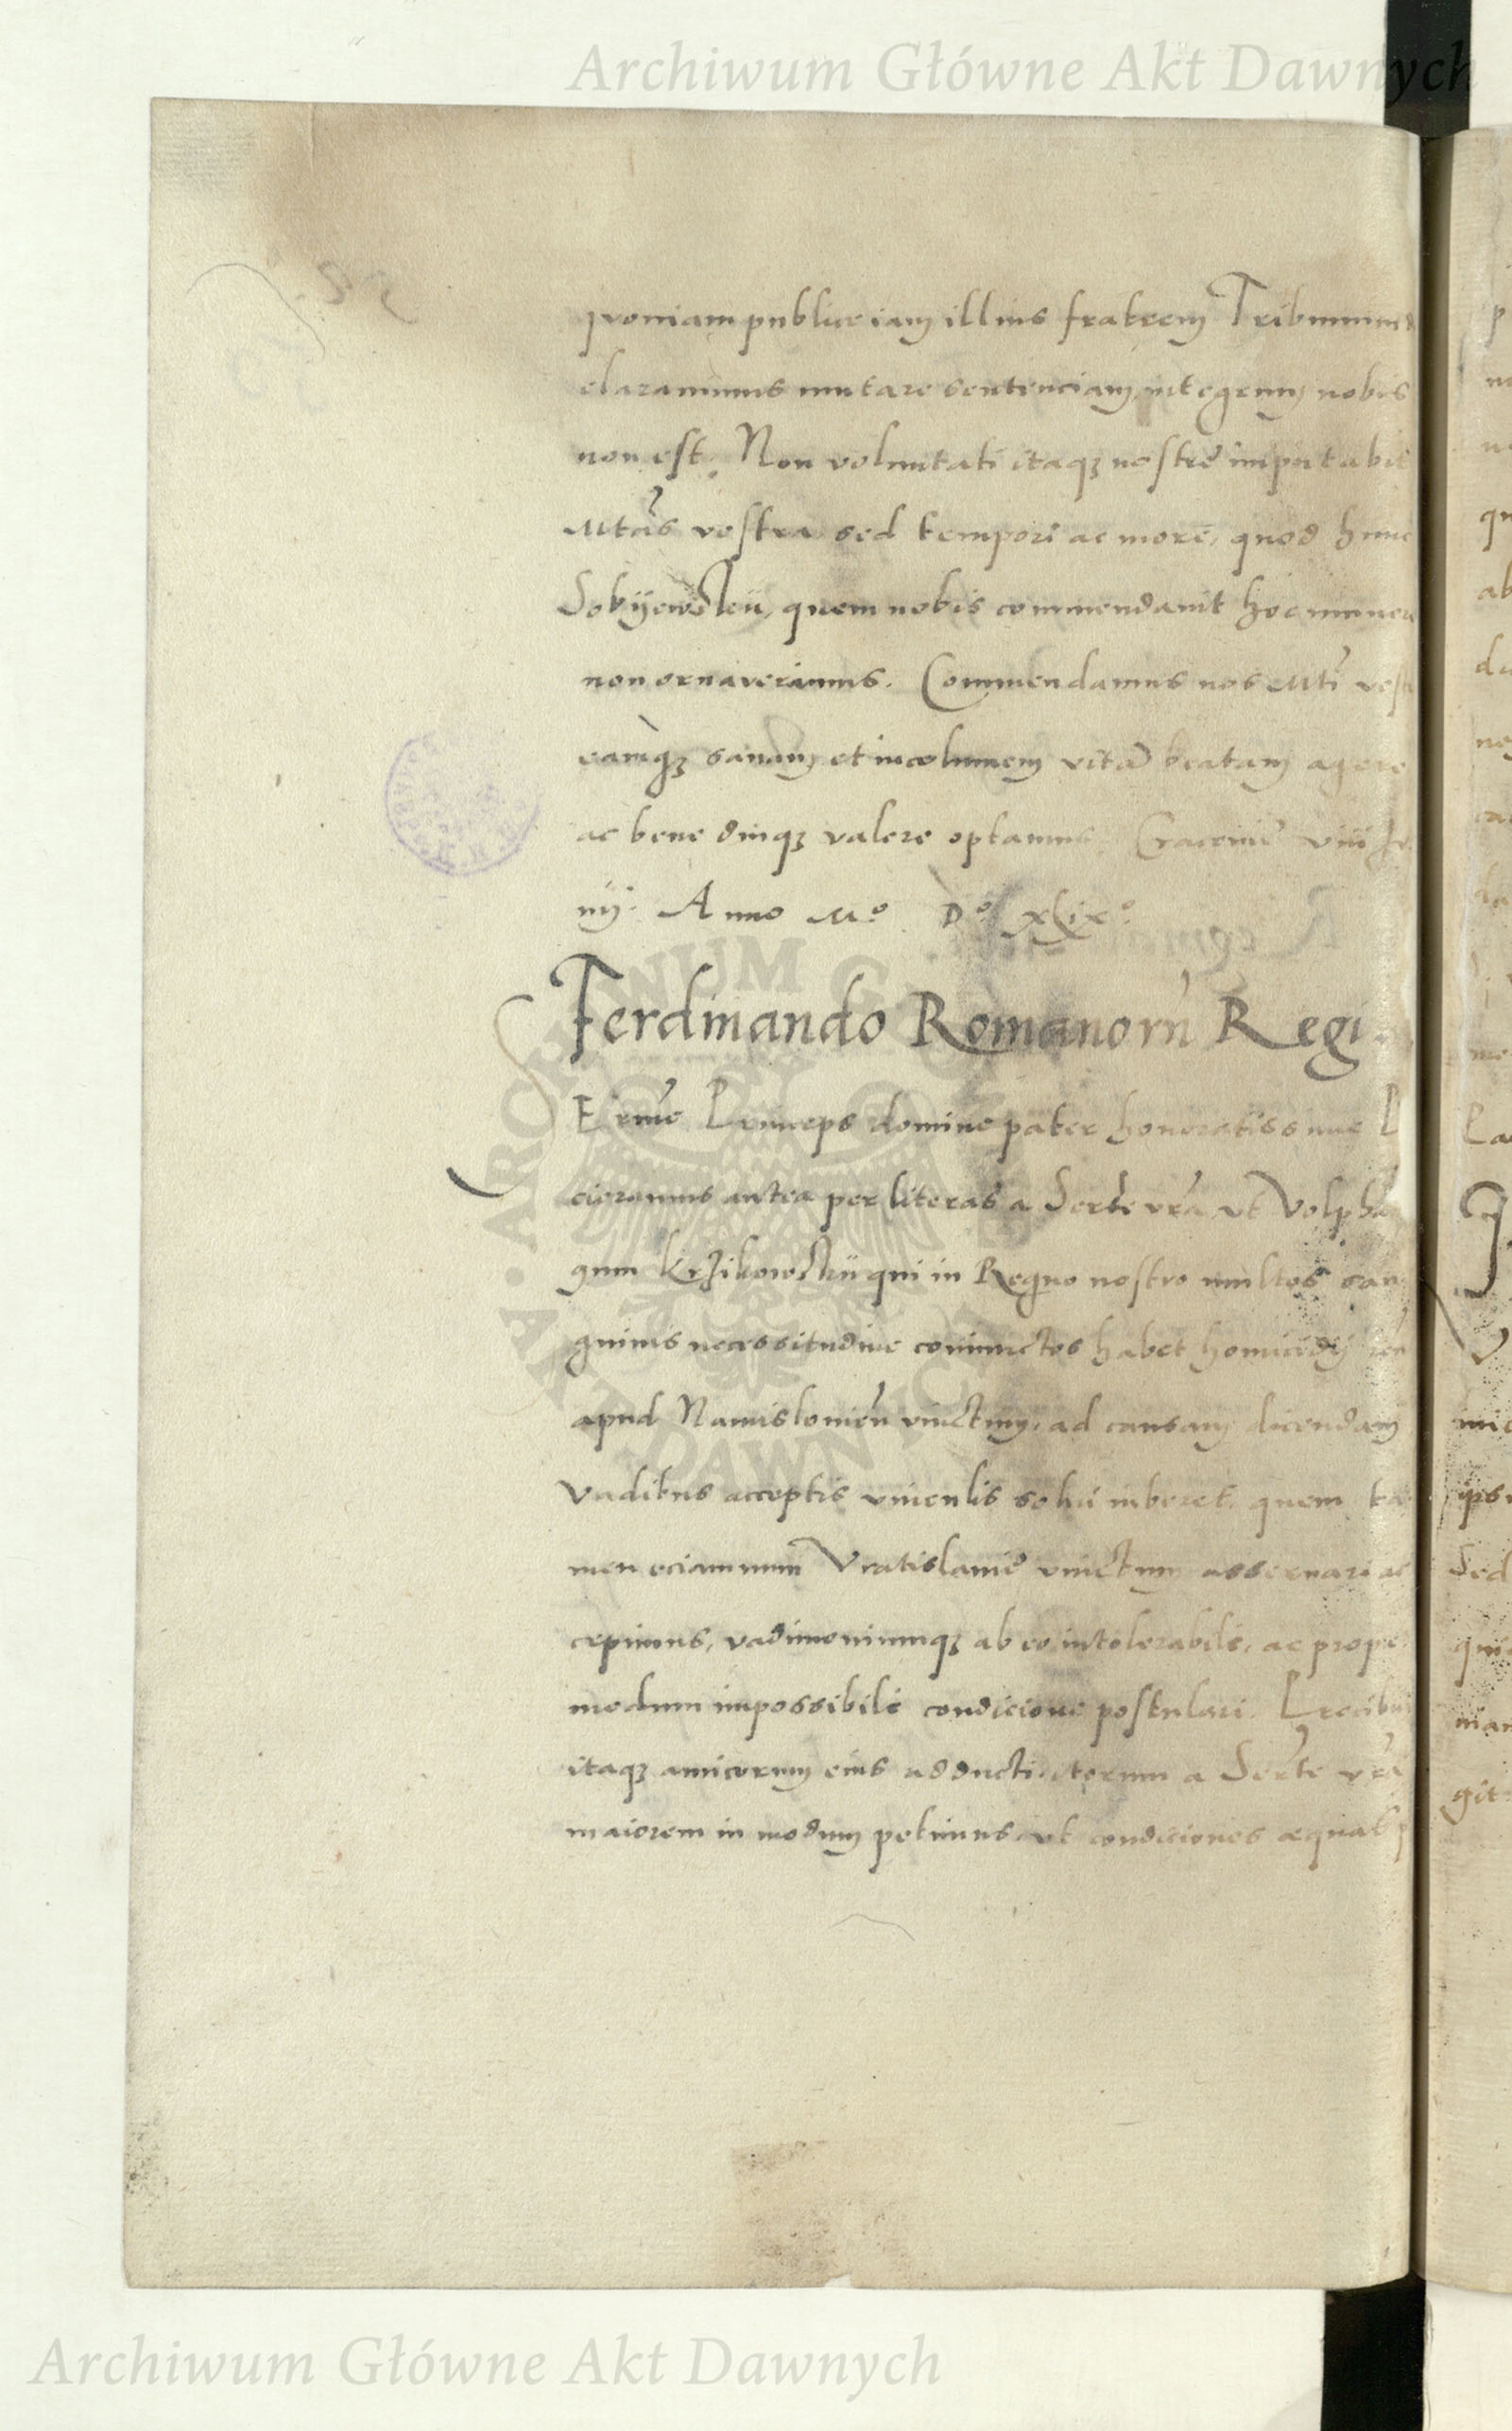 Archiwum Główne Akt Dawnych
quoniam publice iam illius fratrem Tribunum
claravimus mutare sentenciam integrum nobis
non est. Non voluntati itaqꝫ nostrę imputabit
Mtãs vestra sed tempori ac more, quod hunc
Sobyewskiũ, quem nobis commendavit hoc munere
non ornaverimus. Commendamus nos Mti vest
eamqꝫ sanam et incolumem vitã beatam agere
ac bene diuqꝫ valere optamus. Cracovię viii
nij. Anno Mº Dº xlixº
Ferdinando Romanorũ Regi
Serme Princeps domine pater honoratissime P
cieramus antea per literas a Serte vra ut Volphã
gum Krzikowskiũ qui in Regno nostro multos san
guinis necessitudine coniunctos habet homicidij reu
apud Namislovien vinctum, ad causam dicendam
vadibus acceptis vinculis solvi iuberet, quem ta
men eciamnum Vratislavię vinctum asservari ac
cepimus, vadimoniumqꝫ ab eo intolerabili, ac prope
modum impossibili condicione postulari. Precibus
itaqꝫ amicorum eius adducti iterum a Serte vra
maiorem in modum petimus, ut condiciones aequas
Archiwum Główne Akt Dawnych